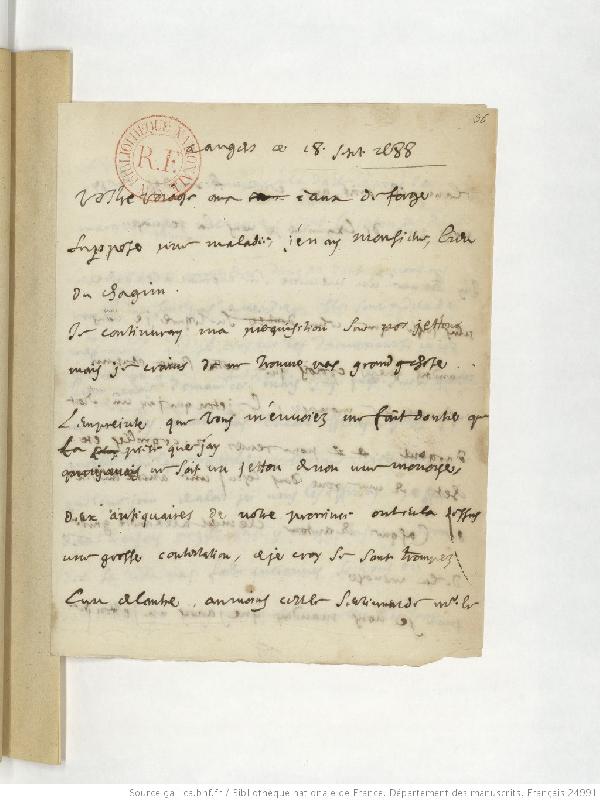 36
BIBLIOTHEQUE NATIONALE
R.F.
Langres ce 18. sept 1688
Vostre voiage aux eaux de forge
suppose une maladie, j'en ay Monsieur, bien
du chagrin.
Je continuray ma perquisition sur vos jettons
mais je crains de ne trouver pas grand chose.
L'empreinte que vous m'envoiez me fait douter que
la petite que j'ay
ne soit un jetton & non une monoye
deux antiquaires de nostre province ont eu la dessus
une grosse contestation, & je croy se sont trompez
l'un & l'autre, au moins c'est le sentiment de Mr. le
Source gallica.bnf.fr / Bibliothèque nationale de France. Département des manuscrits. Français 24991